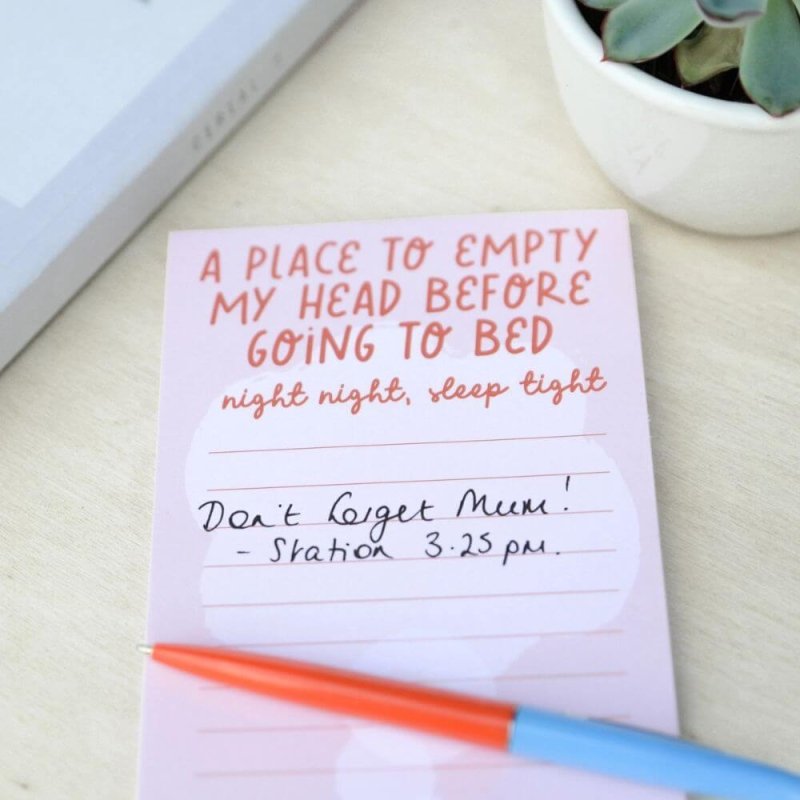 A PLACE TO EMPTY
MY HEAD BEFORE
GOING TO BED
night night, sleep tight
Don't forget Mum!
- Station 3.25 pm.